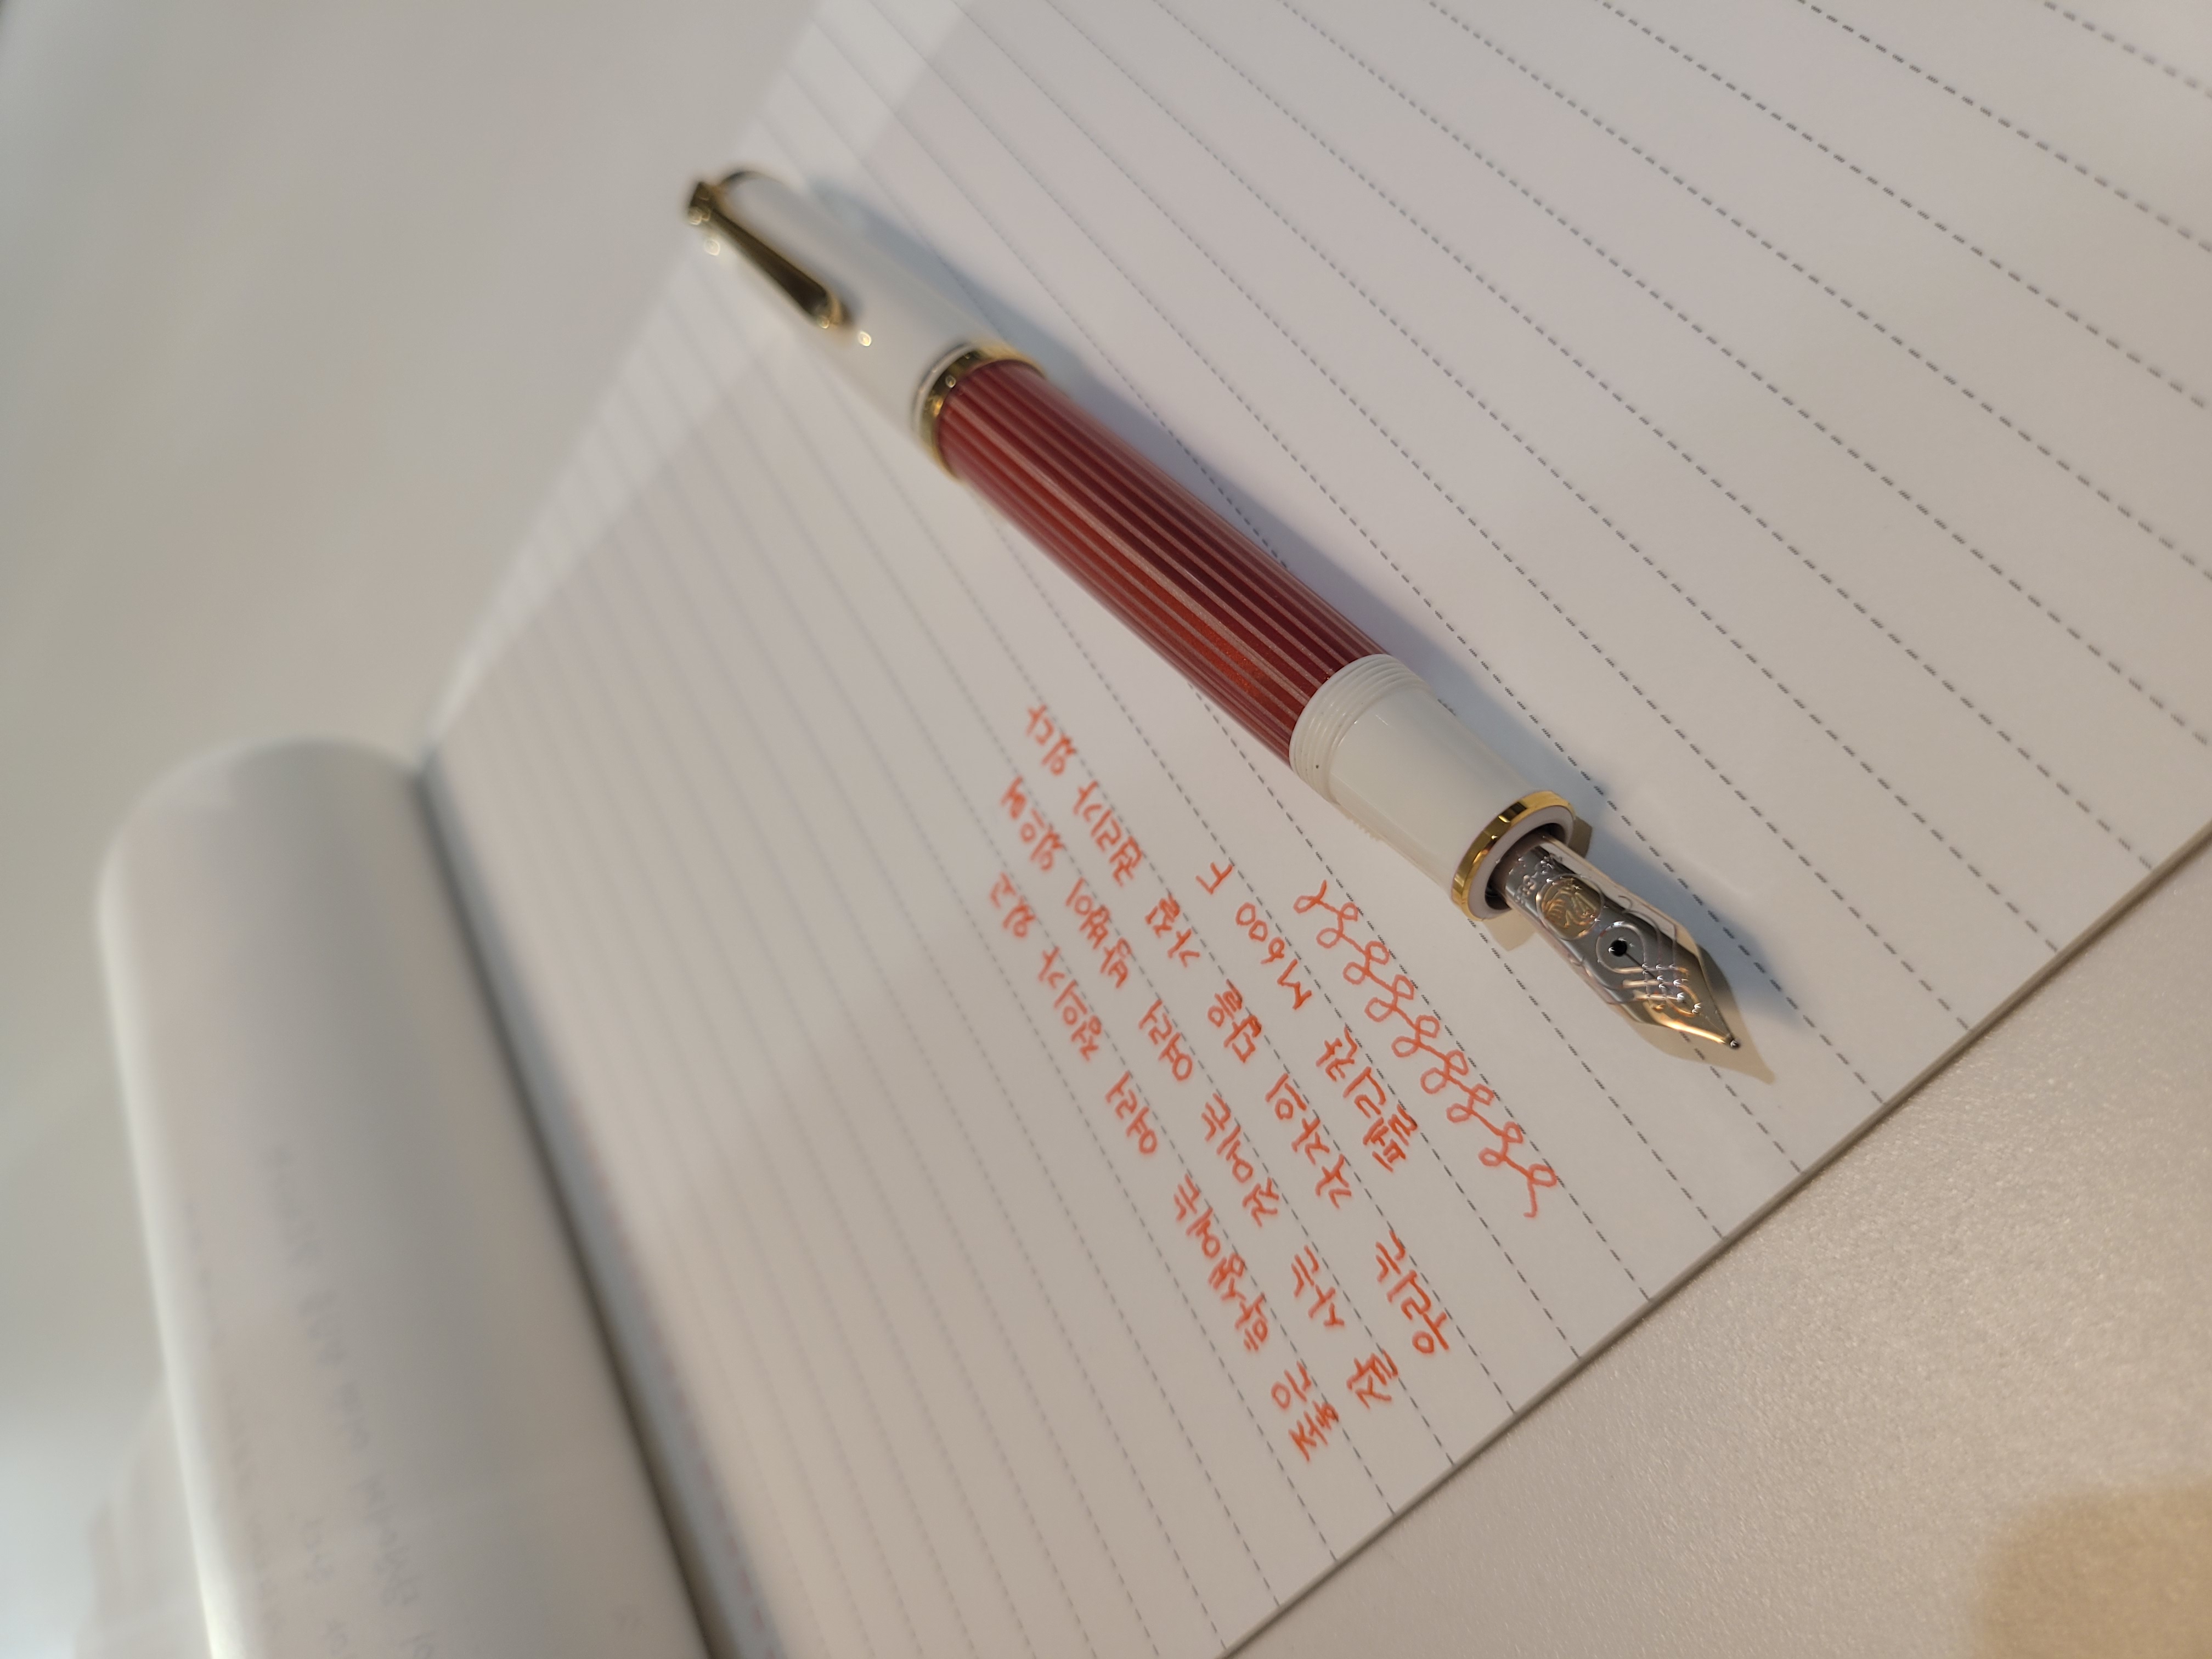 좋은 학생에는 여러 정의가 있고
잘 사는 것에는 여러 방법이 있으며
우리는 각자의 답을 가질 권리가 있다
펠리칸 M600 F